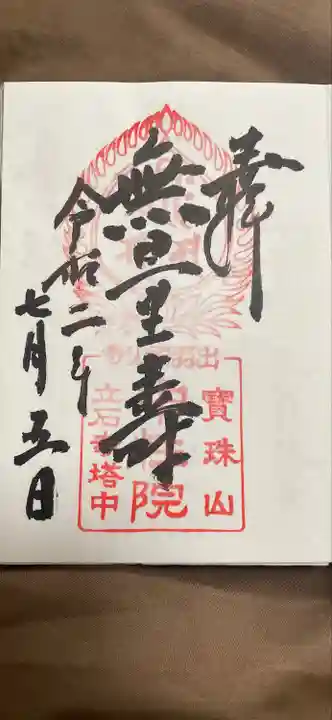 奉拝
無量寿
令和二年
七月五日
寶珠山
院
立石寺塔中